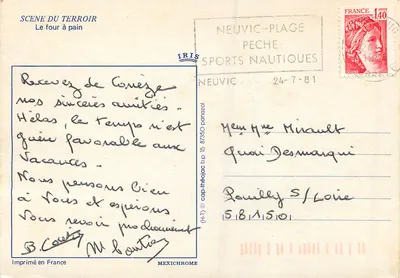 SCENE DU TERROIR
Le four à pain
IRIS
NEUVIC-PLAGE
PECHE
SPORTS NAUTIQUES
NEUVIC 24-7-81
FRANCE
1,40
Recevez de Corrèze
nos sincères amitiés -
Hélas, le temps n'est
guère favorable aux
Vacances -
Nous pensons bien
à Vous et espérons
Vous revoir prochainement
B.
M
Mr Mme Mirault
Quai
Pouilly S/Loire
58150
(H-T) © cap-théojac b.p. 15 87350 panazol
Imprimé en France
MEXICHROME